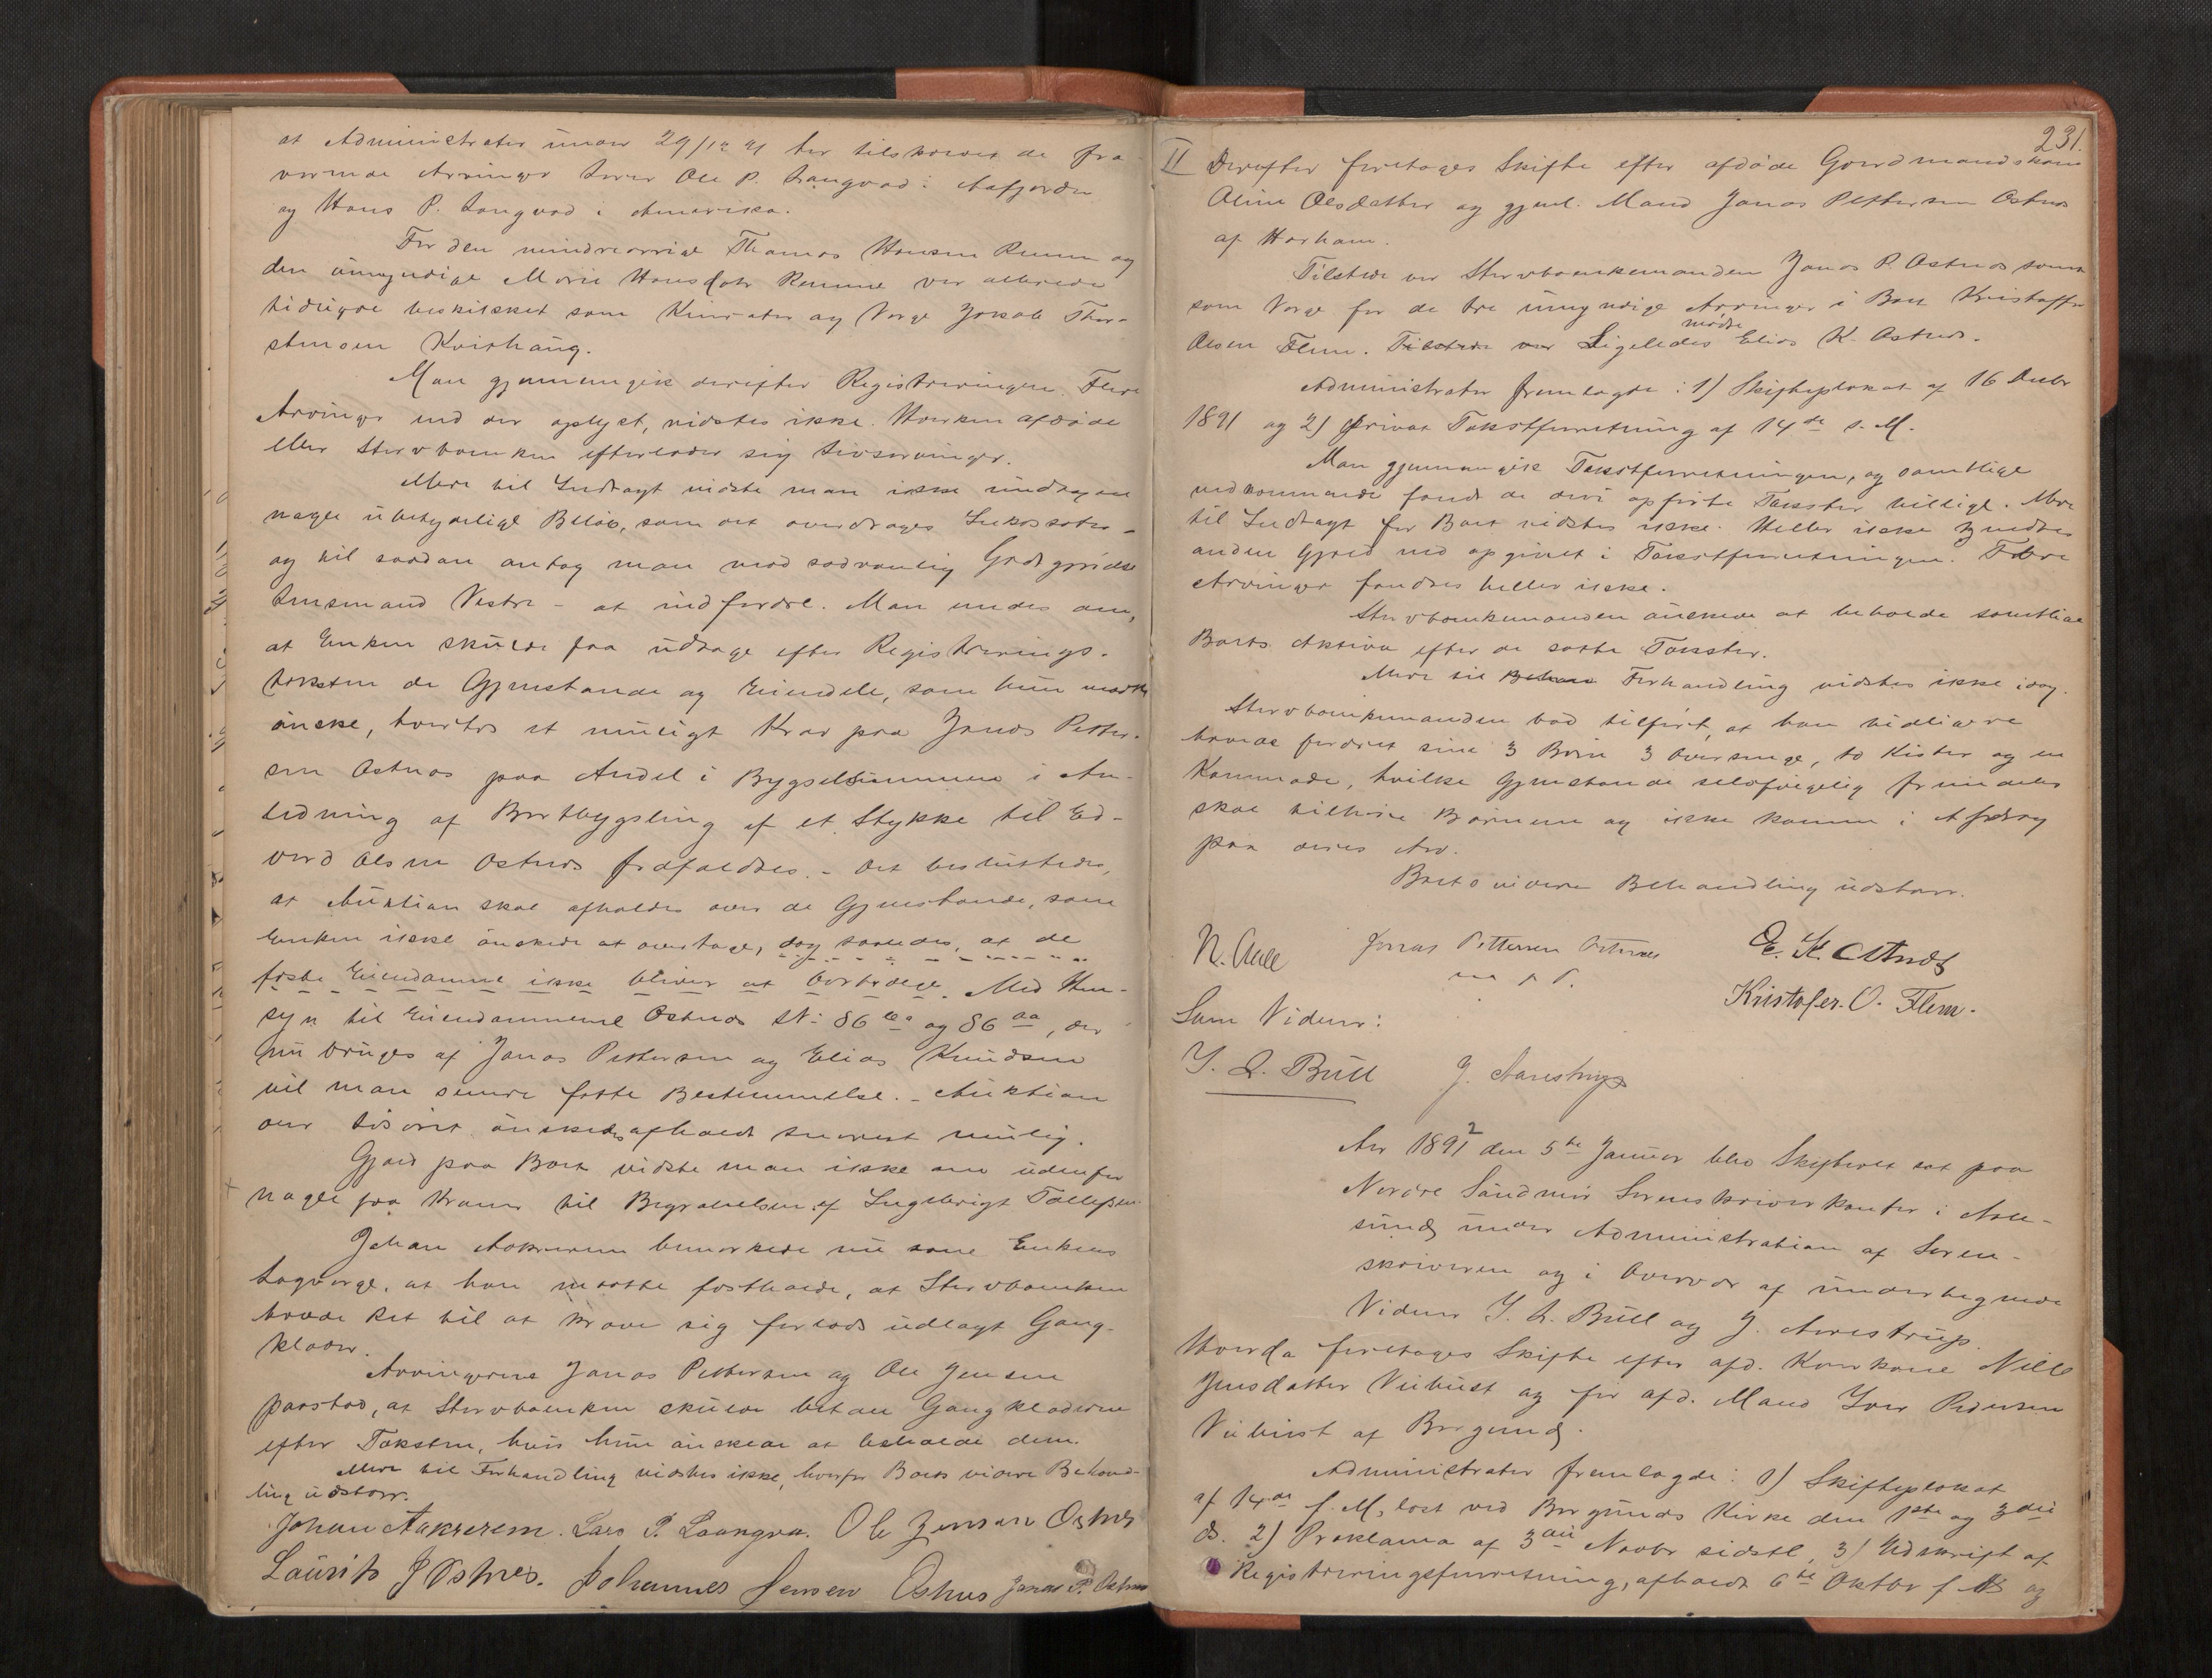 at Administrator under 29/12 91 har tilskrevet de fra-
værende Arvinger Lærer Ole P. Langvad i Aafjorden
og Hans P. Langvad i Amerika.
For den mindreaarige Thomas Hansen Remme og
den umyndige Marie Hansdatr Remme var allerede
tidligere beskikket som Kurator og Verge Jakob Thor-
stensen Kvishaug.
Man gjennemgik derefter Registreringen. Flere
Arvinger end der oplyst, vidstes ikke. Hverken afdøde
eller Stervboenken efterlader sig Livsarvinger.
Mere til Indtægt vidste man ikke undtagen
nogle ubetydelige Beløb, som det overdrages Inkassator –
og til saadan antog man mod sædvanlig Godtgjørelse
Lensmand Vestre – at indfordre. Man enedes om,
at Enken skulde faa udtage efter Registrerings-
taksten de Gjenstande og Eiendele, som hun maatte
ønske, hvorhos et muligt Krav paa Jonas Petter-
sen Østnes paa Andel i Bygselsummen i An-
ledning af Bortbygsling af et Stykke til Ed-
vard Olsen Østnes frafaldtes. – Det besluttedes,
at Auktion skal afholdes over de Gjenstande, som
Enken ikke ønskede at overtage, dog saaledes, at de
faste Eiendomme ikke bliver at bortsælge. Med Hen-
syn til Eiendommene Østnes No 86 og 86 aa, der
nu bruges af Jonas Pettersen og Elias Knudsen
vil man senere fatte Bestemmelse. – Auktion
over Løsøret ønskedes afholdt snarest mulig.
Gjæld paa Boet vidste man ikke om udenfor
nogle fra Kramer til Begravelsen af Ingebrigt Tollefsen.
Johan Aakrerem bemærkede nu som Enkens
Lagverge, at han maatte fastholde, at Stervboenken
havde Ret til at kræve sig forlods udlagt Gang-
klæder.
Arvingerne Jonas Pettersen og Ole Jensen
paastod, at Stervboenken skulde betale Gangklæderne
efter Taksten, hvis hun ønskede at beholde dem.
Mere til Forhandling vidstes ikke, hvorfor Boets videre Behand-
ling udstaar.
Johan Aakrerem. Lars P. Laangva. Ole Jensen Østnes
Laurits J Østnes. Johannes Jensen Østnes Jonas P. Østnes
231.
II Derefter foretoges Skifte efter afdøde Gaardmandskone
Oline Olsdatter og gjenl. Mand Jonas Pettersen Østnes
af Harham.
Tilstede var Stervboenkemanden Jonas P. Østnes samt
som Verge for de tre umyndige Arvinger i Boet Kristoffer
Olsen Flem. Tilstede var Ligeledes mødte Elias K. Østnes.
Administrator fremlagde: 1) Skifteplakat af 16 Decbr
1891 og 2) privat Takstforretning af 14de s. M.
Man gjennemgik Takstforretningen, og samtlige
vedkommende fandt de deri opførte Takster billige. Mere
til Indtægt for Boet vidstes ikke. Heller ikke kjendtes
anden Gjæld end opgivet i Takstforretningen. Flere
Arvinger fandtes heller ikke.
Stervboenkemanden ønskede at beholde samtlige
Boets Aktiva efter de satte Takster.
Mere til Behan Forhandling vidstes ikke idag.
Stervboenkemanden bad tilført, at han tidligere
havde foræret sine 3 Børn 3 Oversenge, to Kister og en
Kommode, hvilke Gjenstande selvfølgelig fremdeles
skal tilhøre Børnene og ikke komme i Afdrag
paa deres Arv.
Boets videre Behandling udstaar.
N. Aall Jonas Pettersen Østnes E. K. Østnes
m p P. Kristofer. O. Flem.
Som Vidner:
I. L. Bull J. Aarestrup
Aar 1892 den 5te Januar blev Skifteret sat paa
Nordre Søndmør Sorenskriverkontor i Aale-
sund under Administration af Soren-
skriveren og i Overvær af undertegnede
Vidner I. L. Bull og J. Aarestrup.
Hvorda foretoges Skifte efter afd. Kaarkone Nille
Jensdatter Veibust og før afd. Mand Iver Pedersen
Veibust af Borgund.
Administrator fremlagde: 1) Skifteplakat
af 14de f. M, læst ved Borgunds Kirke den 1ste og 3die
ds. 2) Proklama af 3die Novbr sidstl, 3) Udskrift af
Registreringsforretning, afholdt 6te Oktbr f. A og